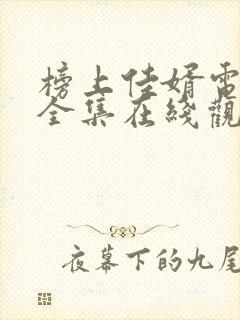 榜上佳婿電
全集在綫觀
夜幕下的九尾